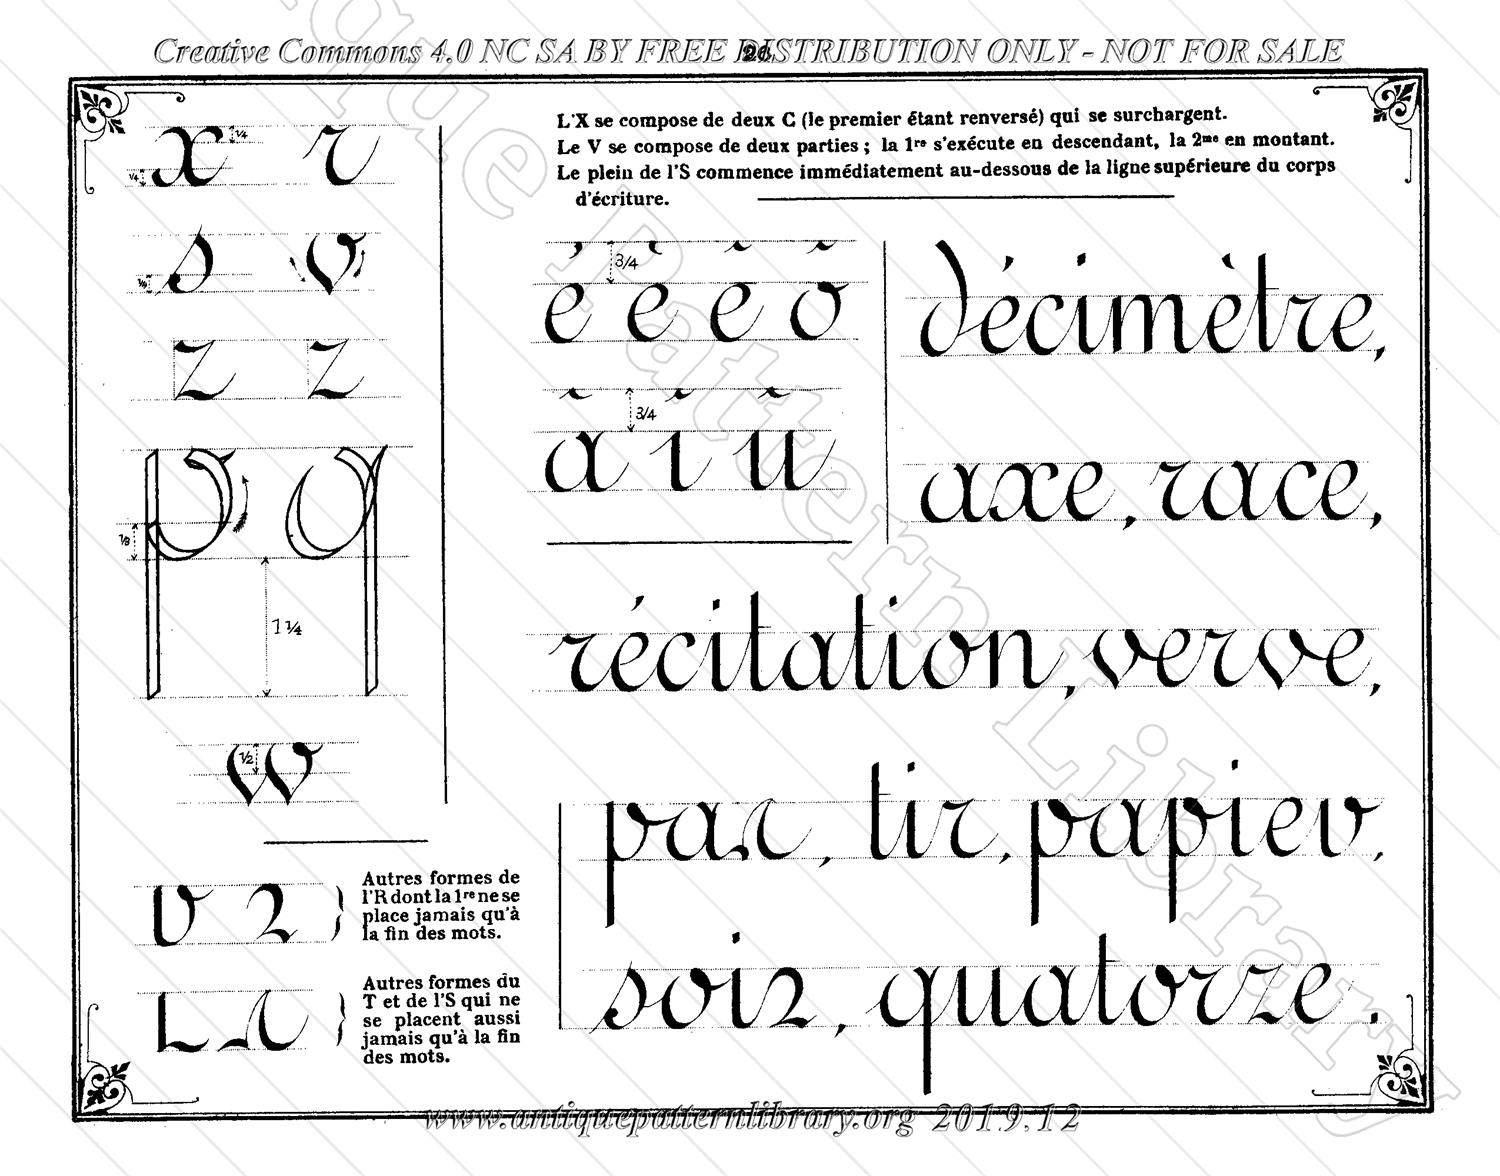 Creative Commons 4.0 NC SA BY FREE DISTRIBUTION ONLY - NOT FOR SALE
26
L'X se compose de deux C (le premier étant renversé) qui se surchargent.
Le V se compose de deux parties ; la 1re s'exécute en descendant, la 2me en montant.
Le plein de l'S commence immédiatement au-dessous de la ligne supérieure du corps
d'écriture.
x r
1/4
1/4
s v
1/8
z z
p q
1/8
1 1/4
w
1/2
Autres formes de
l'R dont la 1re ne se
place jamais qu'à
la fin des mots.
Autres formes du
T et de l'S qui ne
se placent aussi
jamais qu'à la fin
des mots.
é è ê ô
3/4
â î û
3/4
décimètre,
axe, race,
récitation, verve,
pas, tir, papier,
soir, quatorze.
www.antiquepatternlibrary.org 2019.12
Antique Pattern Library